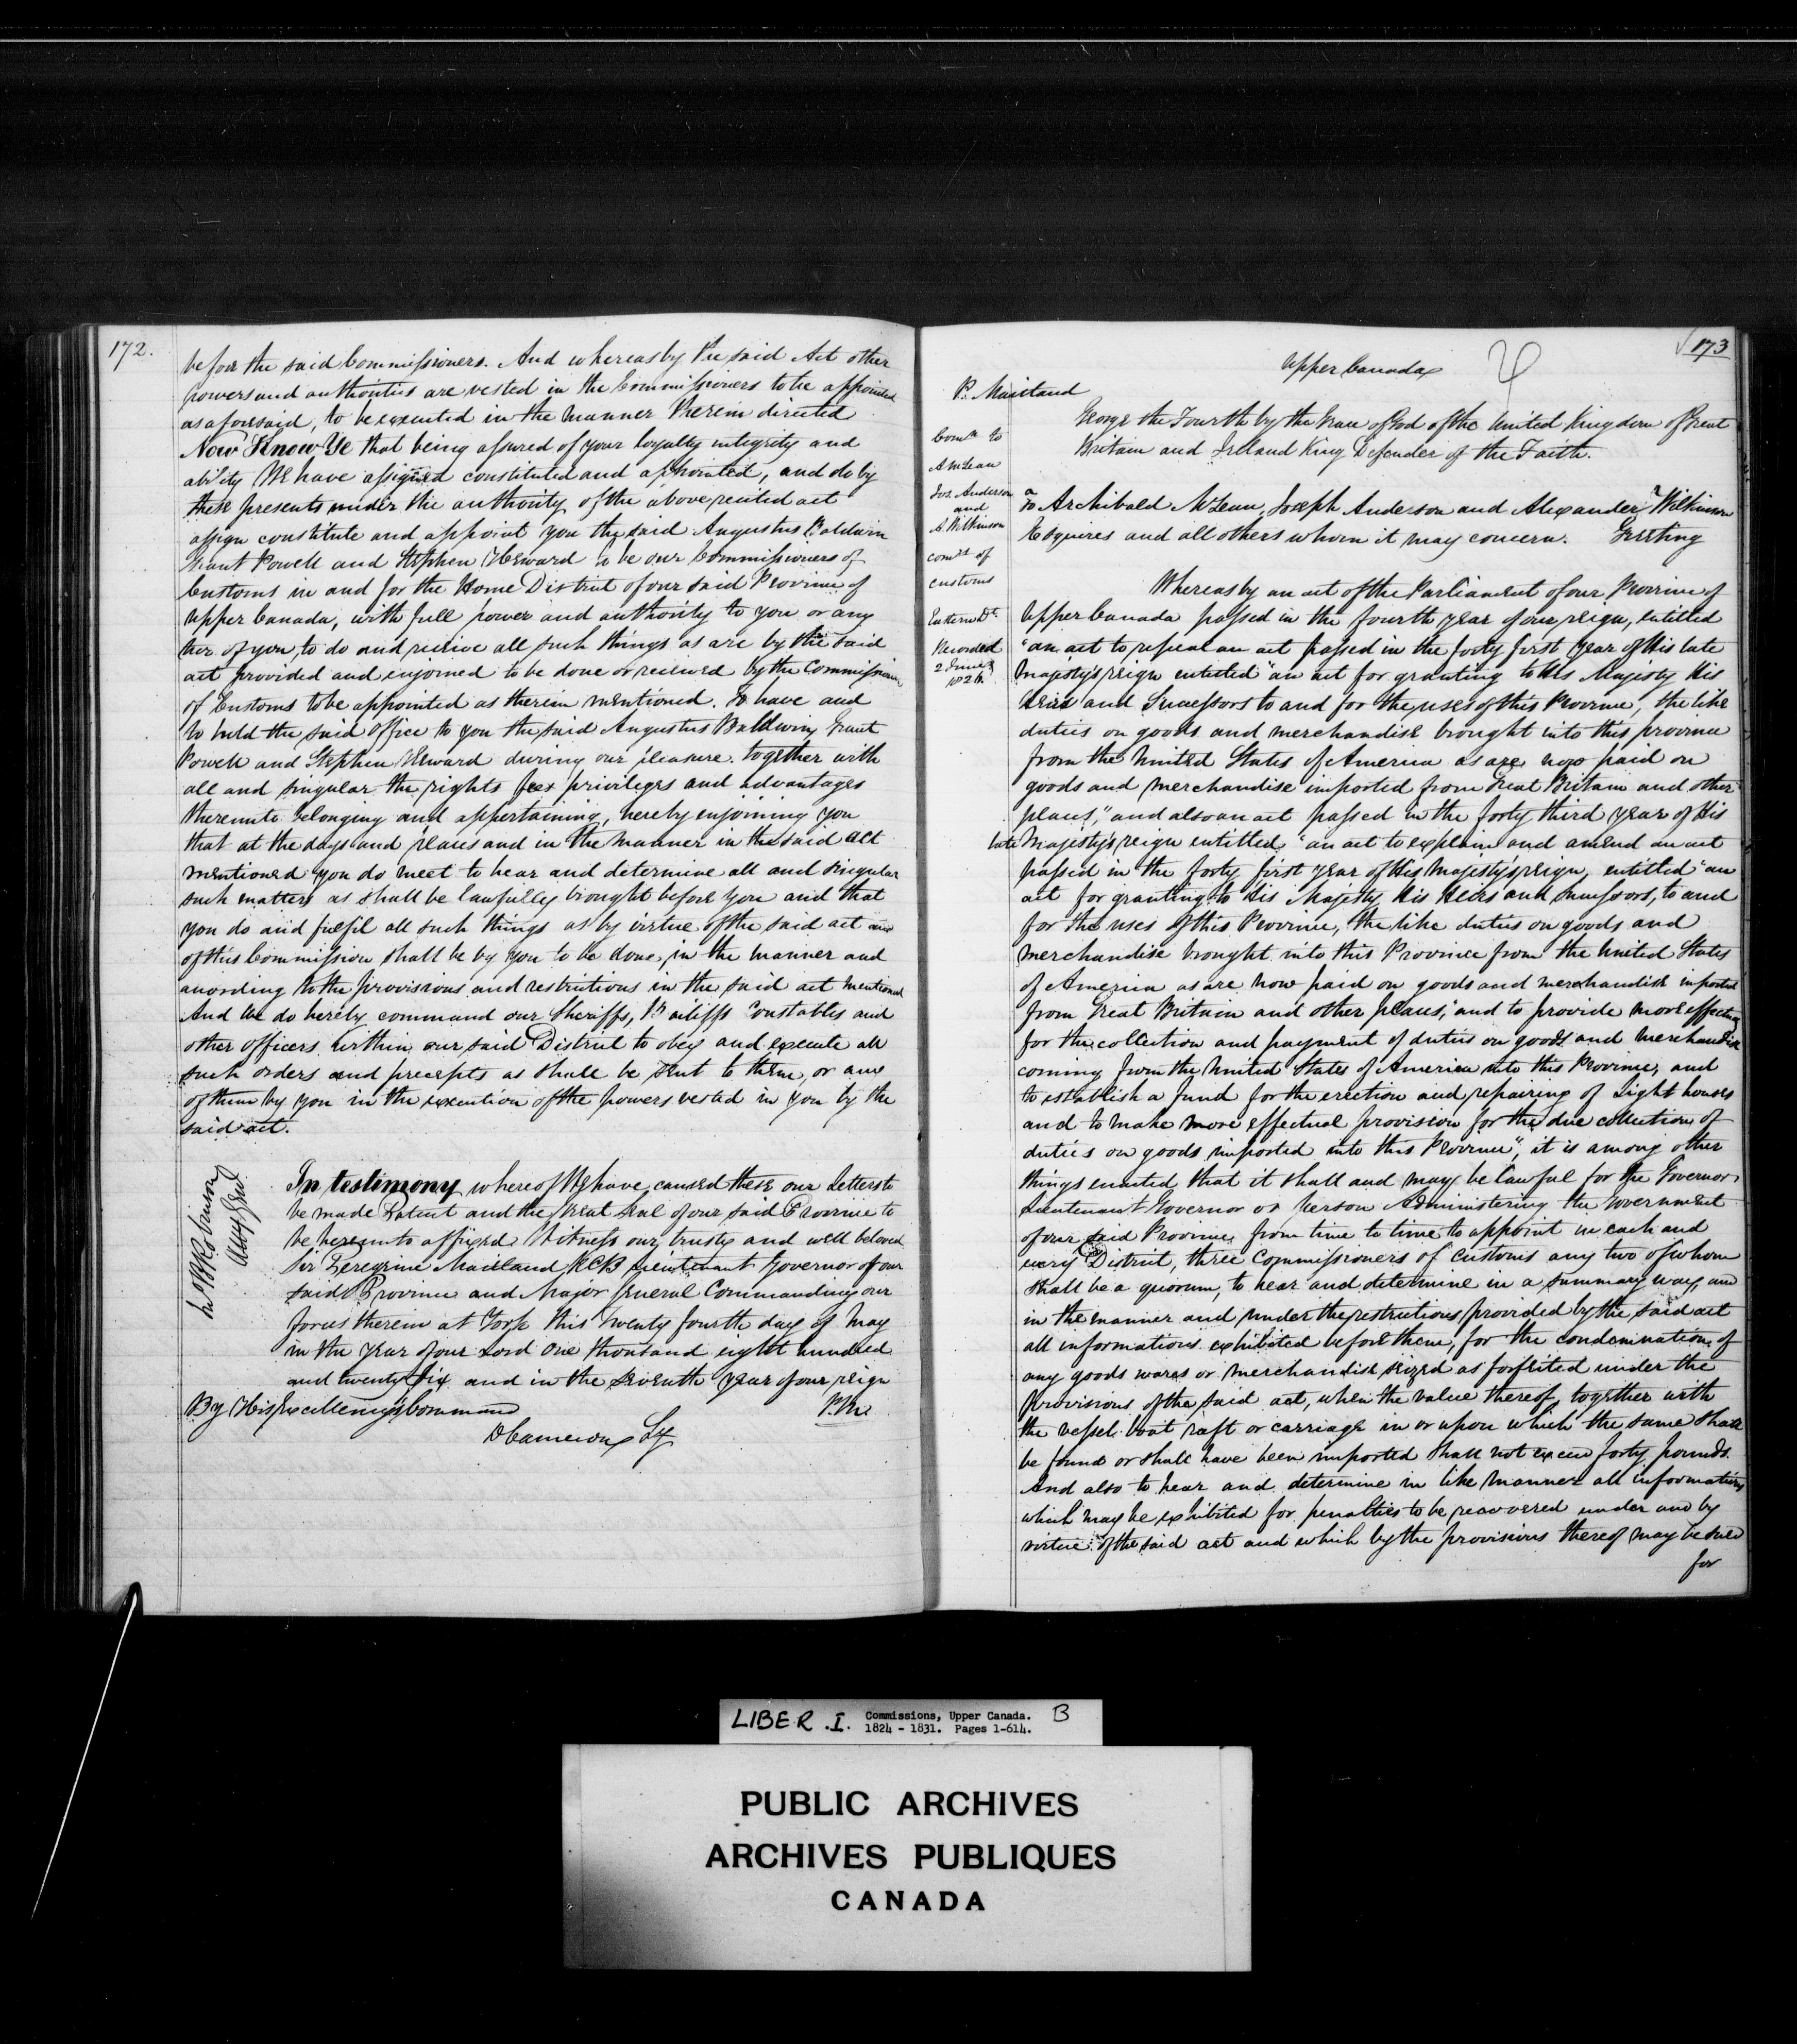 172.
before the said Commissioners. And whereas by the said Act other
powers and authorities are vested in the Commissioners to be appointed
as aforesaid, to be executed in the manner therein directed
Now Know Ye that being assured of your loyalty integrity and
ability We have assigned constituted and appointed, and do by
these presents under the authority of the above recited act
assign constitute and appoint you the said Augustus Baldwin
Grant Powell and Stephen Heward to be our Commissioners of
Customs in and for the Home District of our said Province of
Upper Canada, with full power and authority to you or any
two of you, to do and receive all such things as are by the said
act provided and enjoined to be done or received by the Commissioners
of Customs to be appointed as therein mentioned. To have and
to hold the said office to you the said Augustus Baldwin, Grant
Powell and Stephen Heward during our pleasure together with
all and singular the rights fees privileges and advantages
thereunto belonging and appertaining, hereby enjoining you
that at the days and places and in the manner in the said act
mentioned you do meet to hear and determine all and singular
such matters as shall be lawfully brought before you and that
you do and fulfil all such things as by virtue of the said act and
of this Commission shall be by you to be done, in the manner and
according to the provisions and restrictions in the said act mentioned
And we do hereby command our Sheriffs, Bailiffs Constables and
other officers within our said District to obey and execute all
such orders and precepts as shall be sent to them, or any
of them by you in the execution of the powers vested in you by the
said act.
In testimony whereof We have caused these our Letters to
be made Patent and the Great Seal of our said Province to
be hereunto affixed Witness our trusty and well beloved
Sir Peregrine Maitland KCB Lieutenant Governor of our
said Province and Major General Commanding our
forces therein at York this Twenty fourth day of May
in the year of our Lord One thousand eight hundred
and twenty six and in the seventh year of our reign
By His Excellency's Command P.M.
DCameron Sy
JnoBRobinson
Atty Genl
173
Upper Canada
P. Maitland
George the Fourth by the Grace of God of the United Kingdom of Great
Britain and Ireland King Defender of the Faith.
Comn to
A McLean
Jos. Anderson
and
A. Wilkinson
comrs of
customs
Eastern Dt
Recorded
2 June
1826.
To Archibald McLean, Joseph Anderson and Alexander Wilkinson
Esquires and all others whom it may concern. Greeting
Whereas by an act of the Parliament of our Province of
Upper Canada passed in the fourth year of our reign, entitled
"an act to repeal an act passed in the forty first year of His late
Majesty's reign entitled "an act for granting to His Majesty His
heirs and Successors to and for the uses of this Province, the like
duties on goods and merchandise brought into this province
from the United States of America as are now paid on
goods and merchandise imported from Great Britain and other
places," and also an act passed in the forty third year of His
late Majesty's reign entitled "an act to explain and amend an act
passed in the forty first year of His Majesty's reign, entitled "an
act for granting to His Majesty His Heirs and Successors, to and
for the uses of this Province, the like duties on goods and
merchandise brought into this Province from the United States
of America as are now paid on goods and merchandise imported
from Great Britain and other places," and to provide more effectually
for the collection and payment of duties on goods and merchandise
coming from the United States of America into this Province, and
to establish a fund for the erection and repairing of Light houses
and to make more effectual provision for the due collection of
duties on goods imported into this Province", it is among other
things enacted that it shall and may be lawful for the Governor
Lieutenant Governor or person Administering the Government
of our said Province from time to time to appoint in each and
every District, three Commissioners of Customs any two of whom
shall be a quorum, to hear and determine in a summary way, and
in the manner and under the restrictions provided by the said act
all informations exhibited before them, for the condemnation of
any goods wares or merchandise seized as forfeited under the
provisions of the said act, when the value thereof together with
the vessel boat raft or carriage in or upon which the same shall
be found or shall have been imported shall not exceed forty pounds.
And also to hear and determine in like manner all informations
which may be exhibited for penalties to be recovered under and by
virtue of the said act and which by the provisions thereof may be sued
for
LIBER .I. Commissions, Upper Canada. B
1824 - 1831. Pages 1-614.
PUBLIC ARCHIVES
ARCHIVES PUBLIQUES
CANADA